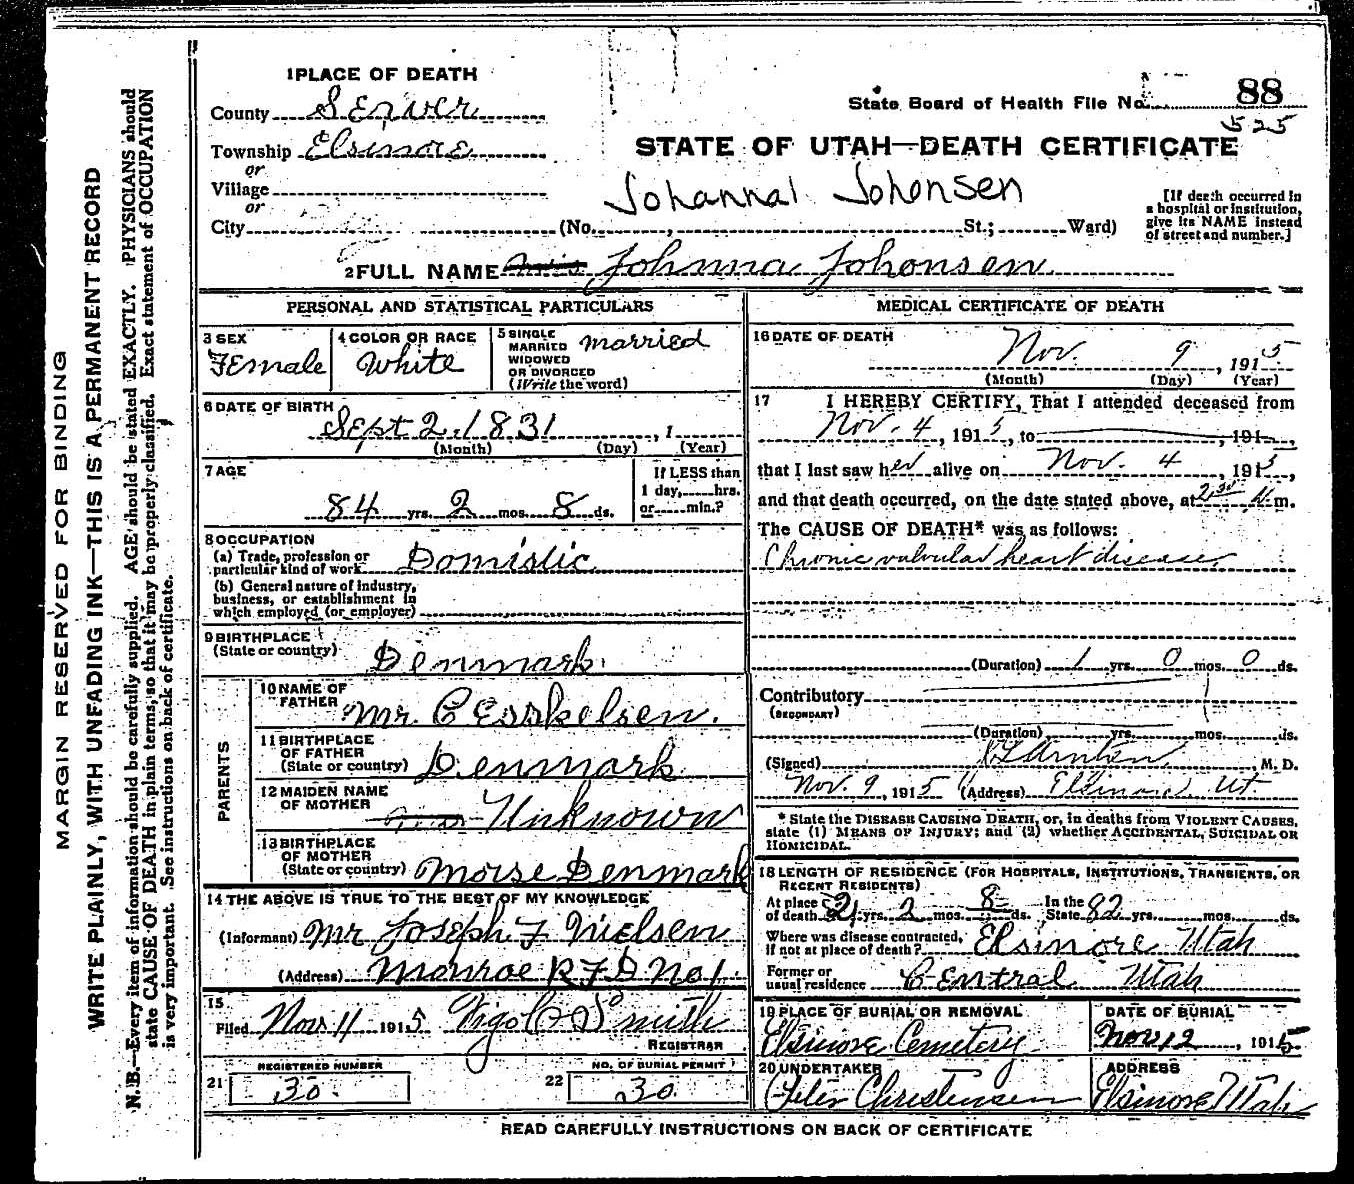 1 PLACE OF DEATH
County Sevier
Township Elsinore
or
Village
or
City (No. , St.; Ward)
State Board of Health File No. 88
525
STATE OF UTAH—DEATH CERTIFICATE
Johannal Johonsen
[If death occurred in a hospital or institution, give its NAME instead of street and number.]
2 FULL NAME Johnna Johonsen
PERSONAL AND STATISTICAL PARTICULARS
3 SEX Female
4 COLOR OR RACE White
5 SINGLE MARRIED WIDOWED OR DIVORCED (Write the word) married
6 DATE OF BIRTH Sept 2, 1831 , 1
(Month) (Day) (Year)
7 AGE
84 yrs. 2 mos. 8 ds.
If LESS than 1 day, hrs. or min.?
8 OCCUPATION
(a) Trade, profession or particular kind of work Domistic
(b) General nature of industry, business, or establishment in which employed (or employer)
9 BIRTHPLACE
(State or country) Denmark
PARENTS
10 NAME OF FATHER Mr. C Esskelsen.
11 BIRTHPLACE OF FATHER (State or country) Denmark
12 MAIDEN NAME OF MOTHER Unknown
13 BIRTHPLACE OF MOTHER (State or country) Morse Denmark
14 THE ABOVE IS TRUE TO THE BEST OF MY KNOWLEDGE
(Informant) Mr Joseph F Nielsen
(Address) Monroe R F D No 1
15
Filed Nov 11 1915 Vigo Smith
REGISTRAR
REGISTERED NUMBER
21 30.
NO. OF BURIAL PERMIT
22 30.
MEDICAL CERTIFICATE OF DEATH
16 DATE OF DEATH
Nov. 9 , 1915
(Month) (Day) (Year)
17 I HEREBY CERTIFY, That I attended deceased from
Nov. 4 , 1915, to , 191 ,
that I last saw her alive on Nov. 4 , 1915,
and that death occurred, on the date stated above, at 2:30 m.
The CAUSE OF DEATH* was as follows:
Chronic valvular heart disease
(Duration) 1 yrs. 0 mos. 0 ds.
Contributory
(SECONDARY)
(Duration) yrs. mos. ds.
(Signed) , M. D.
Nov. 9 , 1915 (Address) Ut.
* State the DISEASE CAUSING DEATH, or, in deaths from VIOLENT CAUSES, state (1) MEANS OF INJURY; and (2) whether ACCIDENTAL, SUICIDAL OR HOMICIDAL.
18 LENGTH OF RESIDENCE (FOR HOSPITALS, INSTITUTIONS, TRANSIENTS, OR RECENT RESIDENTS)
At place of death yrs. 2 mos. 8 ds. In the State yrs. mos. ds.
Where was disease contracted, if not at place of death? Elsinore Utah
Former or usual residence Central Utah
19 PLACE OF BURIAL OR REMOVAL
Elsinore Cemetery
DATE OF BURIAL
Nov 12 , 1915
20 UNDERTAKER
Peter Christensen
ADDRESS
Elsinore Utah
READ CAREFULLY INSTRUCTIONS ON BACK OF CERTIFICATE
MARGIN RESERVED FOR BINDING
WRITE PLAINLY, WITH UNFADING INK—THIS IS A PERMANENT RECORD
N. B.—Every item of information should be carefully supplied. AGE should be stated EXACTLY. PHYSICIANS should
state CAUSE OF DEATH in plain terms, so that it may be properly classified. Exact statement of OCCUPATION
is very important. See instructions on back of certificate.